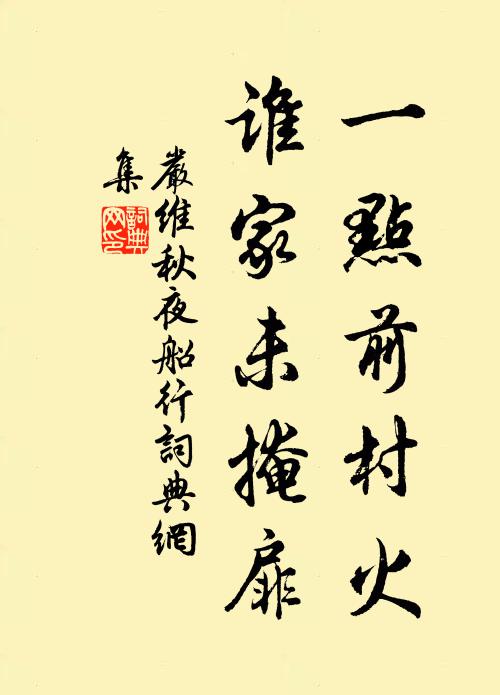 一點前村火
誰家未掩扉
嚴維秋夜船行詞典網
集
詞典
网印